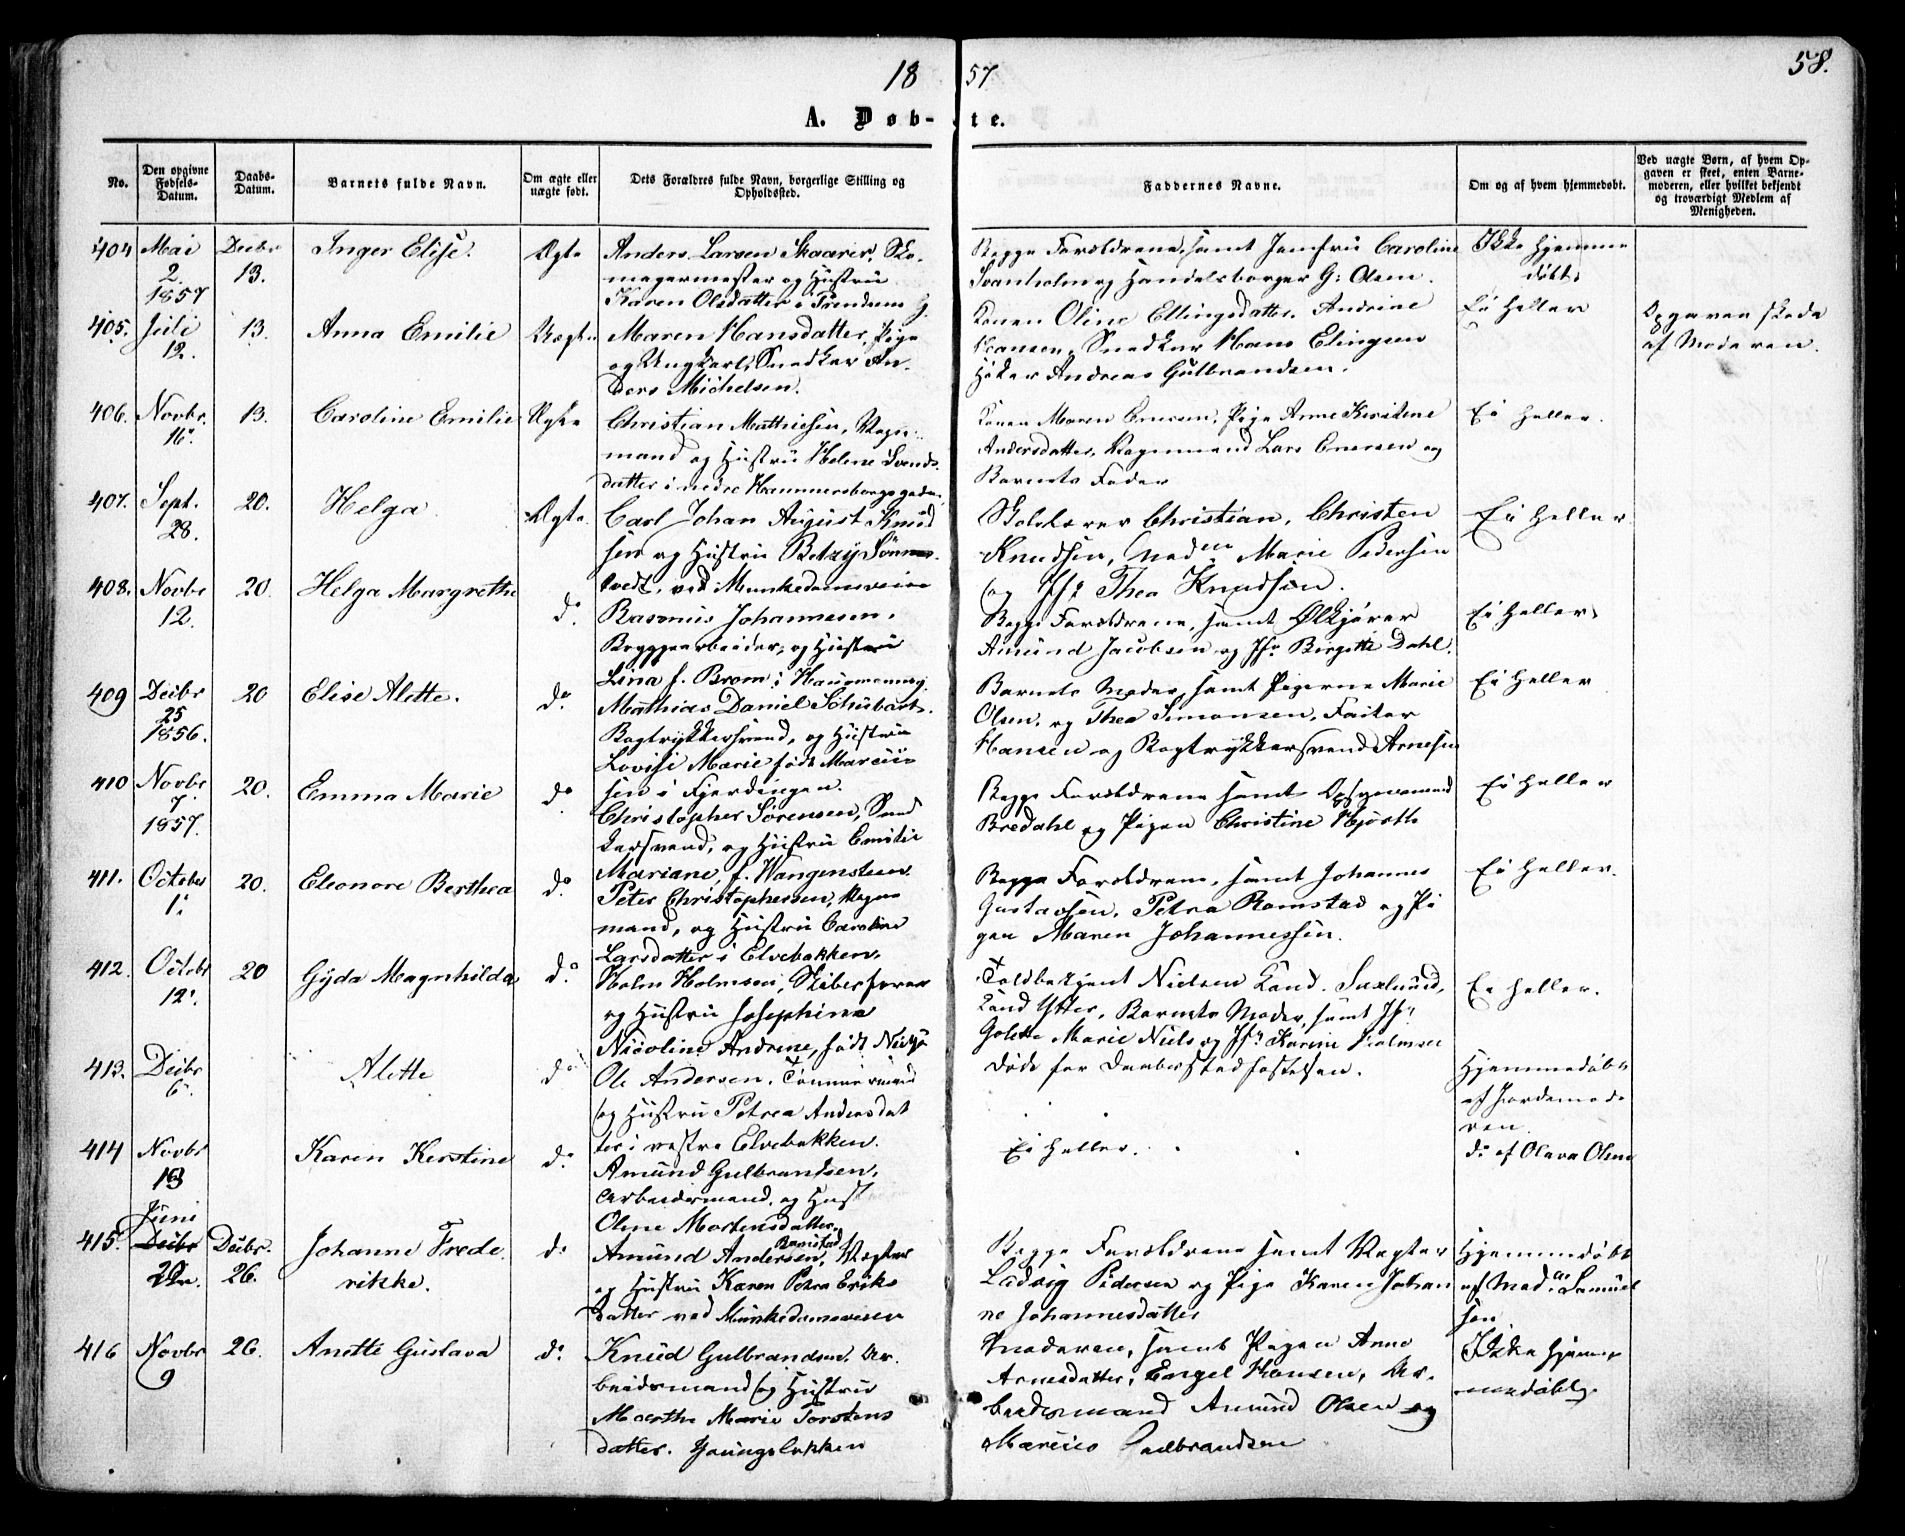 1857
58.
A. Døb-te.
No.
Den opgivne Fødsels-Datum.
Daabs-Datum.
Barnets fulde Navn.
Om ægte eller uægte født.
Dets Forældres fulde Navn, borgerlige Stilling og Opholdssted.
Faddernes Navne.
Om og af hvem hjemmedøbt.
Ved uægte Børn, af hvem Opgaven er skeet, enten Barnemoderen, eller hvilket bekjendt og troværdigt Medlem af Menigheden.
404 Mai 2. 1857 Decbr 13. Inger Elise. Ægte
Anders Larsen Skaarer, Sko-
magermester og Hustru
Karen Olsdatter i
Begge Forældrene, samt Jomfru Caroline
Svanholm og Handelsborger G: Olsen.
Ikke hjemme
døbt.
405. Juli 12. 13. Anna Emilie Uægte
Maren Hansdatter, Pige
og Ungkarl, Snedker An-
ders Michelsen.
Konen Oline Ellingsdatter, Andrine
Hansen, Snedker Hans Elingsen
Høker Andreas Gulbrandsen.
Ei heller
Opgaven skede
af Moderen.
406. Novbr. 16. 13. Caroline Emilie Ægte
Christian Mathiesen, Vogn-
mand og Hustru Helene Svends-
datter i nedre Hammersborgsgaden
Konen Maren Enersen, Pige Anne Kirstine
Andersdatter, Vognmand Lars Enersen og
Barnets Fader
Ei heller.
407. Sept. 28. 20. Helga. Ægte.
Carl Johan August Knud
sen og Hustru Betzy Sønne-
tvedt, ved Munkedamsveien
Skolelærer Christian, Christen
Knudsen, Madm Marie Pedersen
og Jfr Thea Knudsen.
Ei heller
408. Novbr 12. 20. Helga Margrethe do.
Rasmus Johannesen,
Bryggearbeider, og Hustru
Lina f. Brom, i Hausmannsg.
Begge Forældrene, samt Ølkjører
Amund Jacobsen og Jfr Birgitte Dahl.
Ei heller.
409 Decbr 25 1856. 20 Elise Alette. do.
Mathias Daniel Schubart.
Bogtrykkersvend, og Hustru
Lovise Marie født Marcus
sen i Fjerdingen.
Barnets Moder, samt Pigerne Marie
Olsen, og Thea Simonsen, Faktor
Hansen og Bogtrykkersvend Arnesen
Ei heller
410 Novbr 7. 1857. 20. Emma Marie do.
Christopher Sørensen, Sned
kersvend, og Hustru Emilie
Mariane, f. Wangensteen.
Begge Forældrene samt Opsynsmand
Bredahl og Pigen Christine Hjorth
Ei heller
411. October 1. 20. Eleonore Berthea do.
Peter Christophersen, Vogn
mand, og Hustru Caroline
Larsdatter i Elvebakken.
Begge Forældrene, samt Johannes
Gustavsen, Petra Romstad og Pi
gen Maren Johannessen.
Ei heller.
412. Octobr 12. 20 Gyda Magnhilda do.
Holm Holmsen, Skibsfører
og Hustru Josephine
Nicoline Andrine, født
Toldbetjent Nielsen Cand.
Cand Ytter, Barnets Moder, samt Jfr
Marie Niels og Jfr Karine Holmsen
Ei heller.
413. Decbr 6. Alette do.
Ole Andersen, Tømmermand
og Hustru Petrea Andersdat
ter i vestre Elvebakken.
Døde før Daabsstadfæstelsen.
Hjemmedøbt
af Jordemode
ren.
414 Novbr 13 Karen Kerstine do.
Amund Gulbrandsen,
Arbeidsmand, og Hust
Oline Mortensdatter.
Ei heller.
do af Olava Olsen
415. Juni Decbr. 26. Johanne Frede
rikke. do.
Amund Andersen Ramstad, Vægter
og Hustru Karen Petra Eriks
datter ved Munkedamsveien
Begge Forældrene samt Vægter
Ludvig Pedersen og Pige Karen Johan
ne Johannesdatter
Hjemmedøbt
af Mad. Samuel
sen.
416 Novbr 9 26. Anette Gustava do.
Knud Gulbrandsen, Ar-
beidsmand og Hustru
Marthe Marie Torstens
datter. Youngsløkken
Moderen, samt Pigen Anne
Arnesdatter, Engel Hansen, Ar-
beidsmand Amund Olsen og
Marcus Gulbrandsen
Ikke hjem-
medøbt.